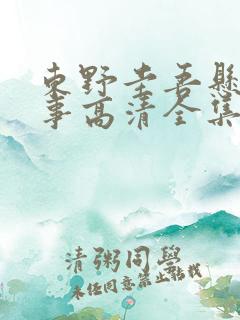 東野圭吾懸
事高清全集
清粥同學
未任同意禁止轉載